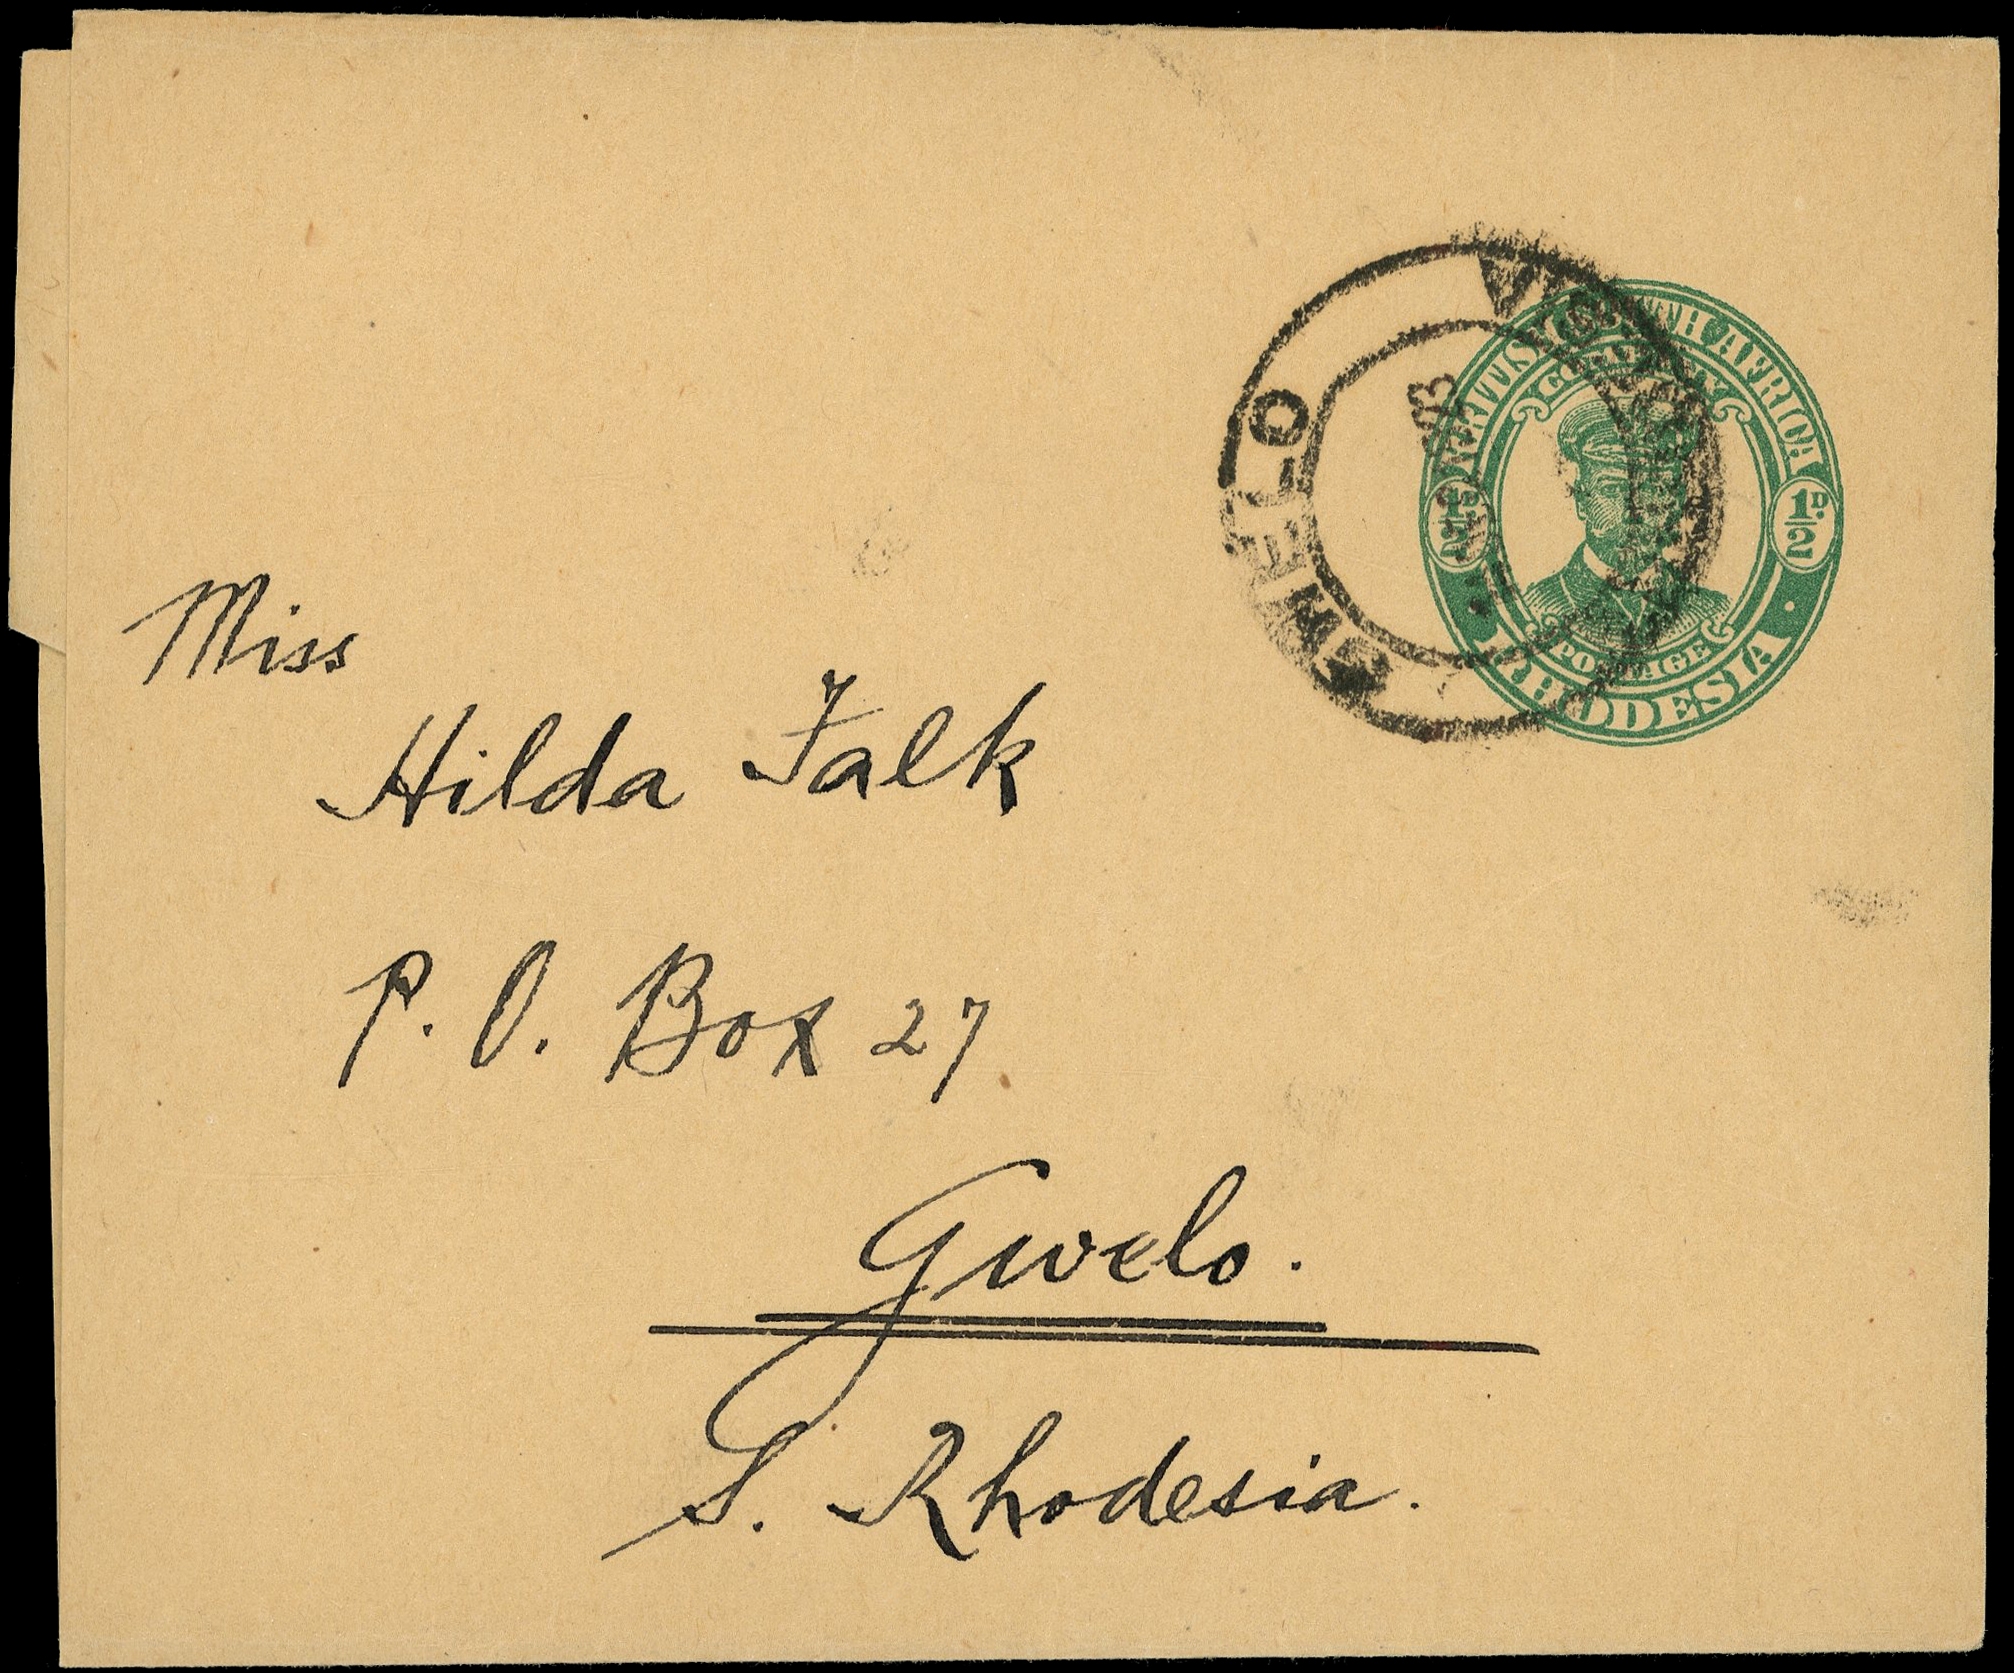 BRITISH SOUTH AFRICA
COMPANY
½D.
½D.
POSTAGE
RHODESIA
GWELO
Miss
Hilda Falk
P. O. Box 27
Gwelo.
S. Rhodesia.